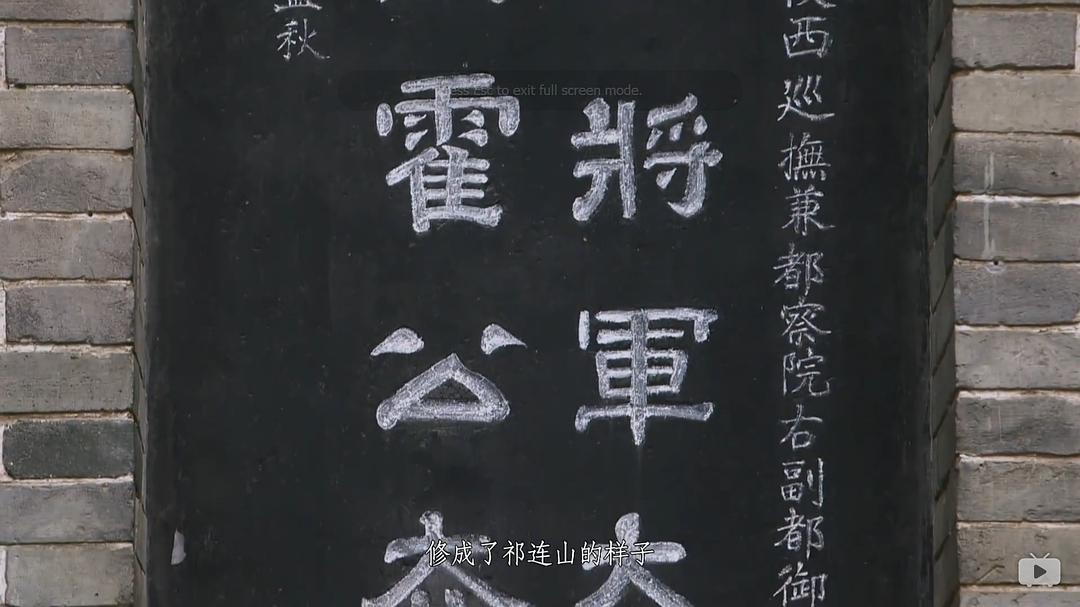 西巡撫兼都察院右副都御
將軍大
霍公
秋
Press Esc to exit full screen mode.
修成了祁连山的样子